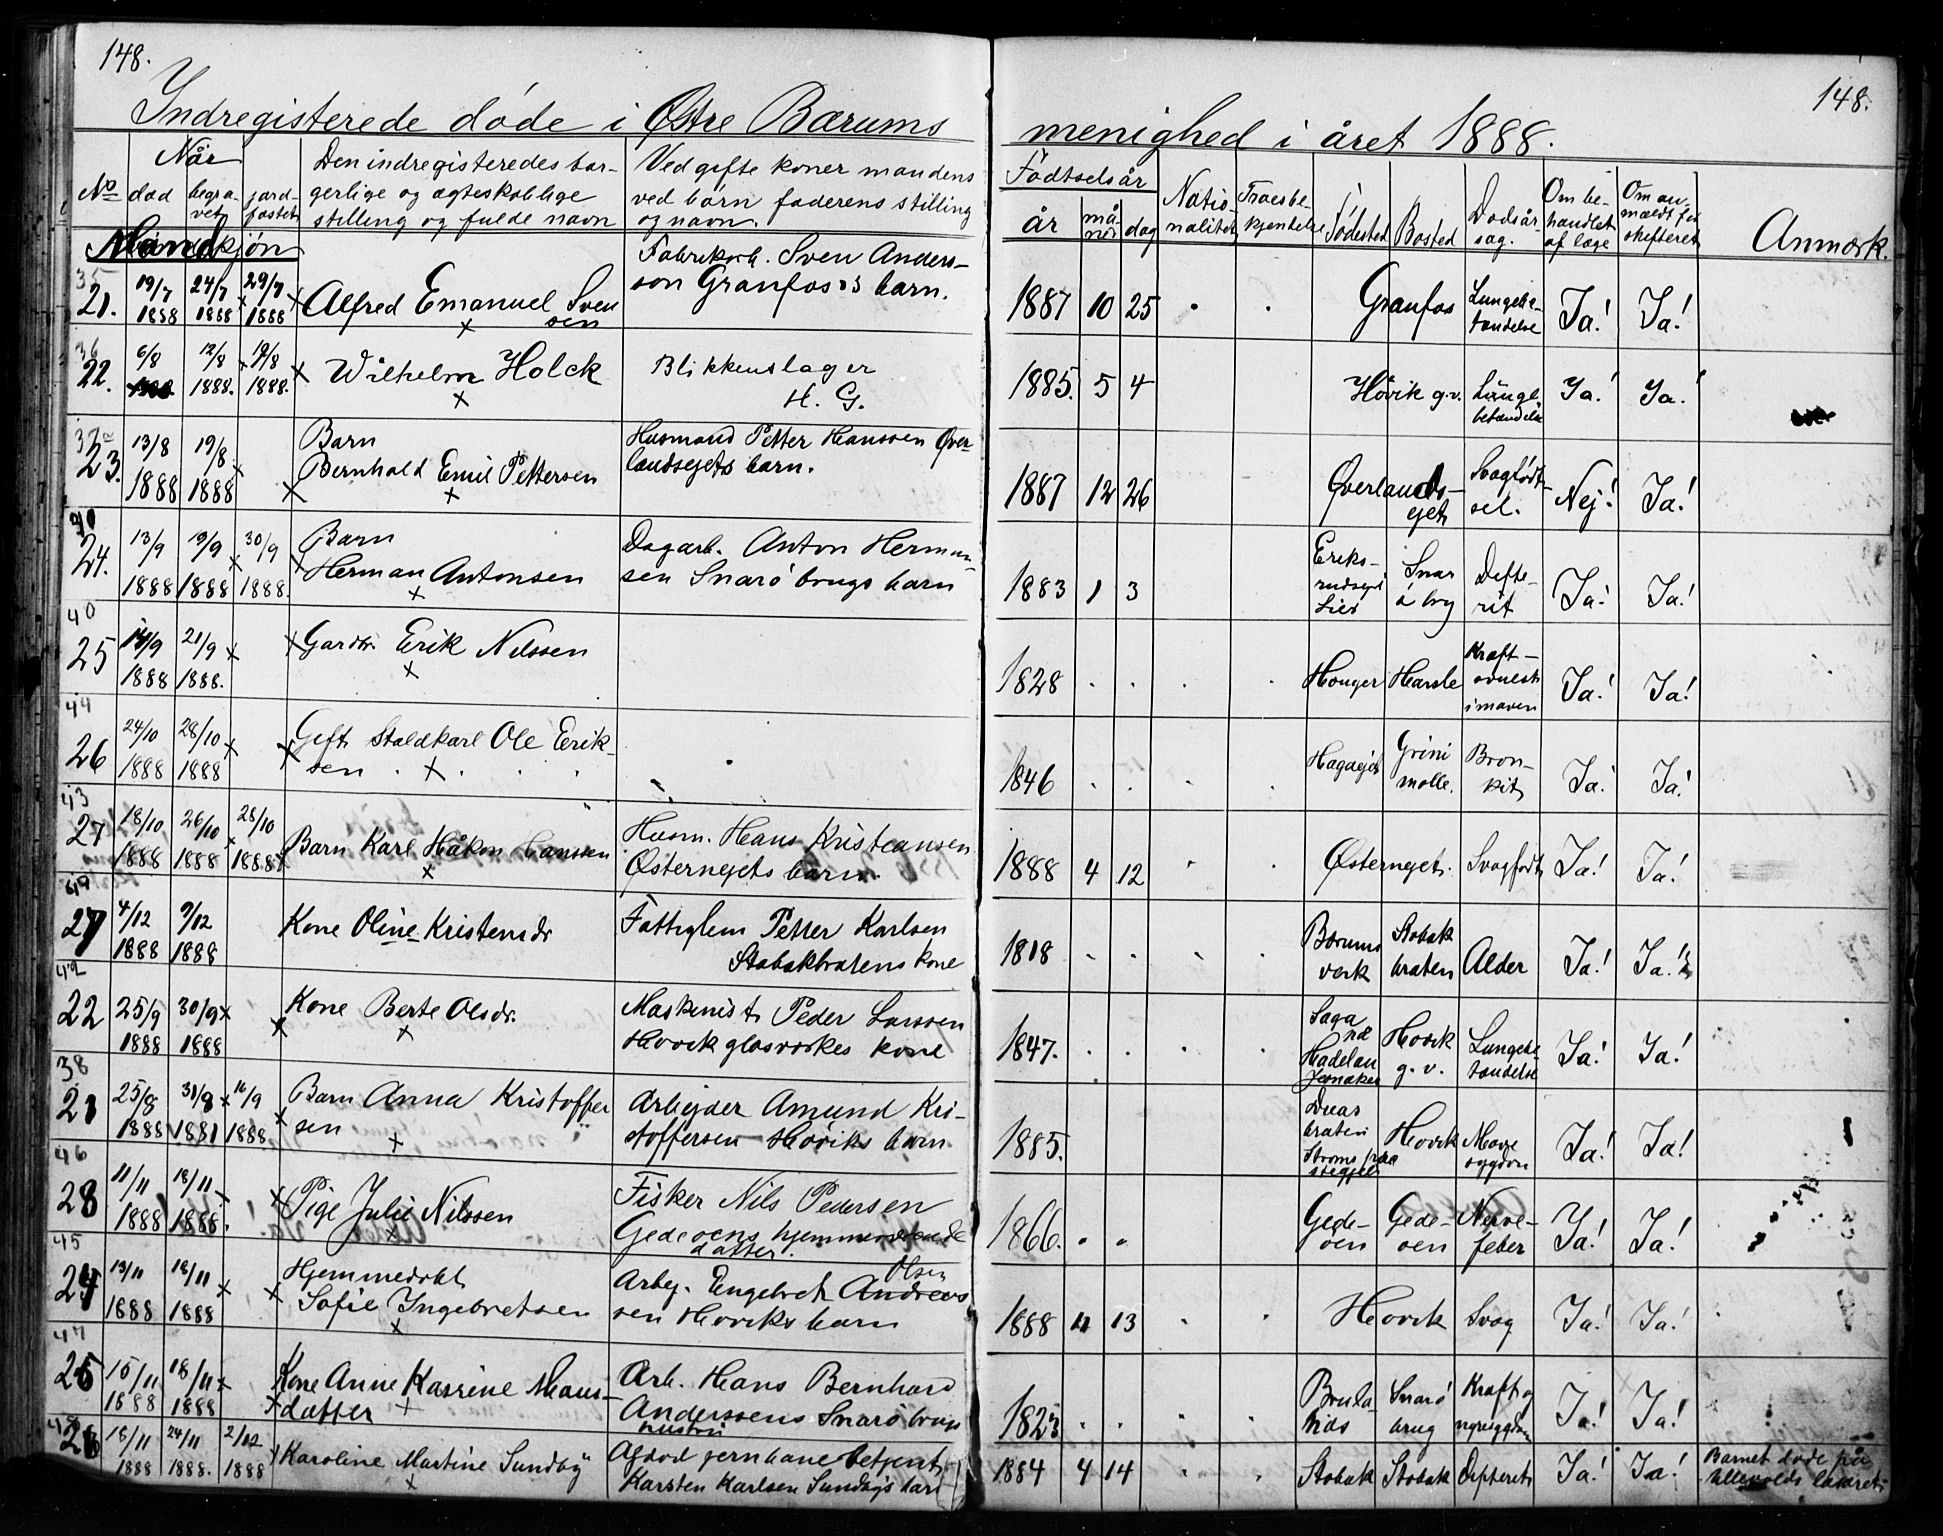 148.
148.
Indregisterede døde i Østre Bærums menighed i året 1888.
No
Når
død
begra-
vet
jord-
fæstet
Den indregisteredes bor-
gerlige og ægteskablige
stilling og fulde navn
Ved gifte koner mandens
ved børn faderens stilling
og navn.
Fødtselsår
år
må-
ned
dag
Natio-
nalitet
Troesbe-
kjendelse
Fødested
Bosted
Dødsår-
sag.
Om be-
handlet
af læge
Om an-
mældt for
skifteret
Anmærk.
Mandkjøn
35
21.
19/7
1888
24/7
1888
29/7
1888
Alfred Emanuel Sven
sen
Fabrikarb. Sven Anders-
son Granfos's barn.
1887 10 25
Granfos
Lungebe-
tændelse
Ja! Ja!
36
22.
6/8
12/8
1888.
19/8
1888.
Wilhelm Holck
Blikkenslager
H. G.
1885. 5 4
Høvik g.v.
Lunge-
betændelse
Ja! Ja!
37
23.
13/8
1888
19/8
1888
Barn
Bernhald Emil Pettersen
Husmand Petter Hanssen Øver-
landsejets barn.
1887 12 26
Øverlands-
ejet
Svagfødt-
sel.
Nej! Ja!
24.
13/9
1888
19/9
1888
30/9
1888.
Barn
Herman Antonsen
Dagarb. Anton Herman-
sen Snarø brugs barn
1883 1 3
Eriks-
rudsejet
Lier
Snar
ø brg
Difte-
rit
Ja! Ja!
40
25
14/9
1888
21/9
1888.
Gardbr. Erik Nilssen
1828
Honger
Harsle
Kræft-
i maven
Ja! Ja!
44
26
24/10
1888
28/10
1888
Gift Staldkarl Ole Erik-
sen
1846
Hagaejet
Grini
mølle.
Bron-
kit
Ja! Ja!
43
27
18/10
1888
26/10
1888
28/10
1888
Barn Karl Håkon Hanssen
Husm. Hans Kristiansen
Østernejets barn.
1888 4 12
Østernejet.
Svagfødt
Ja! Ja!
49
27
4/12
1888
9/12
1888
Kone Oline Kristensdr
Fattiglem Petter Karlsen
Stabækbråtens kone
1818
Bærums
værk
Stabæk
bråten
Alder
Ja! Ja!
42
22
25/9
1888
30/9
1888
Kone Berte Olsdr.
Maskinist Peder Larssen
Høvik glasværkes kone
1847.
Saga
på
Hadelan
Jevnaker
Høvik
g. v.
Lungebe-
tændelse
Ja! Ja!
38
21
25/8
1888
31/8
1881
16/9
1888
Barn Anna Kristoffer
sen
Arbejder Amund Kri-
stoffersen Høviks barn
1885.
bråten
Strøms
Høvik
Mave
sygdom
Ja! Ja!
46
28
11/11
1888
18/11
1888.
Pige Julie Nilssen
Fisker Nils Pedersen
Gedeøens hjemmeværende
datter.
1866.
Gede-
øen
Gede-
øen
Nerve-
feber
Ja! Ja!
45
24
13/11
1888
18/11
1888
Hjemmedøbt
Sofie Ingebretsen
Arbej. Engebret Andreas Olsen
sen Høviks barn
1888 11 13
Høvik
Svag
Ja! Ja!
47
25
15/11
1888
18/11
1888
Kone Anne Katrine Hans-
datter
Arb. Hans Bernhard
Anderssens Snarø brugs
hustru
1823
Snarø
brug
Kræft og
nyresygdom
Ja! Ja!
26
18/11
1888
24/11
1888.
2/12
1888
Karoline Martine Sundby
Afdød jernbanebetjent
Karsten Karlsen Sundbys barn
1884 4 14
Stabæk
Stabæk
Difterit
Ja! Ja!
Barnet døde på
Ullevolds lasaret